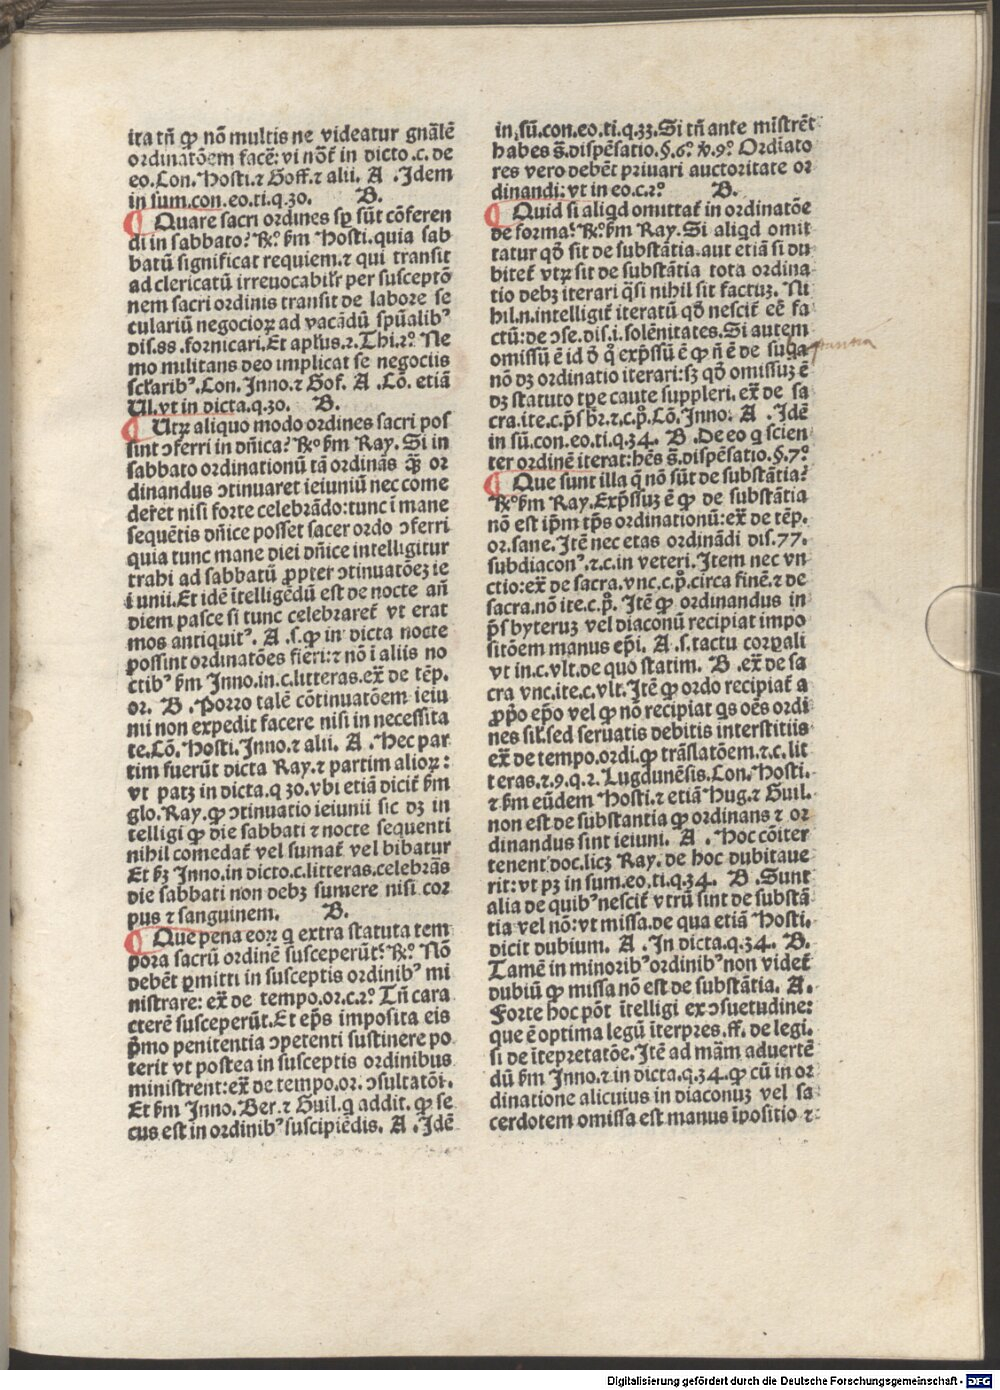 ita tñ ꝙ nõ multis ne videatur gñalẽ
ordinatõem facẽ: vi nõt᷑ in dicto .c. de
eo. Con. Hosti. ⁊ Goff. ⁊ alii. A . Idem
in sum. con. eo. ti. q. 30. B.
¶ Quare sacri ordines sꝑ sũt cõferen
di in sabbato? ℞.º ẜm Hosti. quia sab
batũ significat requiem. ⁊ qui transit
ad clericatũ irreuocabilr̃ per susceptõ
nem sacri ordinis transit de labore se
culariũ negocioꝝ ad vacãdũ spũalibꝰ
dis. 88. fornicari. Et apl̃us. 2. Thi. 2.º Ne
mo militans deo implicat se negociis
scl̃aribꝰ. Con. Inno. ⁊ Gof. A . Cõ. etiã
Ul. vt in dicta. q. 30. B.
¶ Utꝝ aliquo modo ordines sacri pos
sint ↄferri in dñica? ℞.º ẜm Ray. Si in
sabbato ordinationũ tã ordinãs ꝙ̃ or
dinandus ↄtinuaret ieiuniũ nec come
deret nisi forte celebrãdo: tunc ĩ mane
sequẽtis dñice posset sacer ordo ↄferri
quia tunc mane diei dñice intelligitur
trahi ad sabbatũ ꝓpter ↄtinuatõeȝ ie
iunii. Et idẽ ĩtelligẽdũ est de nocte añ
diem pasce si tunc celebraret᷑ vt erat
mos antiquitꝰ. A . s. ꝙ in dicta nocte
possint ordinatões fieri: ⁊ nõ ĩ aliis no
ctibꝰ ẜm Inno. in. c. litteras. ex̃ de tẽp.
or. B . Porro talẽ cõtinuatõem ieiu
nii non expedit facere nisi in necessita
te. Cõ. Hosti. Inno. ⁊ alii. A . Hec par
tim fuerũt dicta Ray. ⁊ partim alioꝝ:
vt patȝ in dicta. q 30. vbi etiã dicit᷑ ẜm
glo. Ray. ꝙ ↄtinuatio ieiunii sic dȝ in
telligi ꝙ die sabbati ⁊ nocte sequenti
nihil comedat᷑ vel sumat᷑ vel bibatur
Et ẜȝ Inno. in dicto. c. litteras. celebrãs
die sabbati non debȝ sumere nisi cor
pus ⁊ sanguinem. B.
¶ Que pena eoꝝ q extra statuta tem
pora sacrũ ordinẽ susceperũt? ℞.º Nõ
debẽt ꝑmitti in susceptis ordinibꝰ mi
nistrare: ex̃ de tempo. or. c. 2.º Tñ cara
cterẽ susceperũt. Et ep̃s imposita eis
pͥmo penitentia ↄpetenti sustinere po
terit vt postea in susceptis ordinibus
ministrent: ex̃ de tempo. or. ↄsultatõi.
Et ẜm Inno. Ber. ⁊ Guil. q addit. ꝙ se
cus est in ordinibꝰ suscipiẽdis. A . Idẽ
in. sũ. con. eo. ti. q. 33. Si tñ ante mĩstrẽt
habes s̃. dispẽsatio. §. 6.º ꝟ. 9.º Ordiato
res vero debẽt priuari auctoritate or
dinandi: vt in eo. c. 2.º B.
¶ Quid si aliqd omittat᷑ in ordinatõe
de forma? ℞.º ẜm Ray. Si aliqd omit
tatur qõ sit de substãtia. aut etiã si du
bitet᷑ vtꝝ sit de substãtia tota ordina
tio debȝ iterari q̃si nihil sit factuȝ. Ni
hil. n. intelligit᷑ iteratũ qõ nescit᷑ eẽ fa
ctũ: de ↄse. dis. i. solẽnitates. Si autem
omissũ ẽ id õ q̊ exp̃ssũ ẽ ꝙ ñ ẽ de suba
stantia
nõ dȝ ordinatio iterari: sȝ qõ omissuȝ ẽ
dȝ statuto tp̃e caute suppleri. ex̃ de sa
cra. ite. c. p̃s br̃. ⁊ c. pͦ. Cõ. Inno. A . Idẽ
in sũ. con. eo. ti. q. 34. B . De eo q scien
ter ordinẽ iterat: hẽs s̃. dispẽsatio. §. 7.º
¶ Que sunt illa q̃ nõ sũt de substãtia?
℞.º ẜm Ray. Exp̃ssuȝ ẽ ꝙ de substãtia
nõ est ip̃m tp̃s ordinationũ: ex̃ de tẽp.
or. sane. Itẽ nec etas ordinãdi dis. 77.
subdiaconꝰ. ⁊. c. in veteri. Item nec vn
ctio: ex̃ de sacra. vnc. c. pͦ. circa finẽ. ⁊ de
sacra. nõ ite. c. pͦ. Itẽ ꝙ ordinandus in
p̃sbyteruȝ vel diaconũ recipiat impo
sitõem manus ep̃i. A . s. tactu corꝑali
vt in. c. vlt. de quo statim. B . ex̃ de sa
cra vnc. ite. c. vlt. Itẽ ꝙ ordo recipiat᷑ a
ꝓp̃o ep̃o vel ꝙ nõ recipiat qs oẽs ordi
nes sil̃. sed seruatis debitis interstitiis
ex̃ de tempo. ordi. ꝙ trãslatõem. ⁊. c. lit
teras. ⁊. 9. q. 2. Lugdunẽsis. Con. Hosti.
⁊ ẜm eũdem Hosti. ⁊ etiã Hug. ⁊ Guil.
non est de substantia ꝙ ordinans ⁊ or
dinandus sint ieiuni. A . Hoc cõiter
tenent doc. licȝ Ray. de hoc dubitaue
rit: vt pȝ in sum. eo. ti. q. 34. B . Sunt
alia de quibꝰ nescit᷑ vtrũ sint de substã
tia vel nõ: vt missa. de qua etiã Hosti.
dicit dubium. A . In dicta. q. 34. B.
Tamẽ in minoribꝰ ordinibꝰ non videt᷑
dubiũ ꝙ missa nõ est de substãtia. A.
Forte hoc põt ĩtelligi ex ↄsuetudine:
que ẽ optima legũ ĩterpres. ff. de legi.
si de ĩtepretatõe. Itẽ ad mãm aduertẽ
dũ ẜm Inno. ⁊ in dicta. q. 34. ꝙ cũ in or
dinatione alicuius in diaconuȝ vel sa
cerdotem omissa est manus ĩpositio ⁊
Digitalisierung gefördert durch die Deutsche Forschungsgemeinschaft - DFG